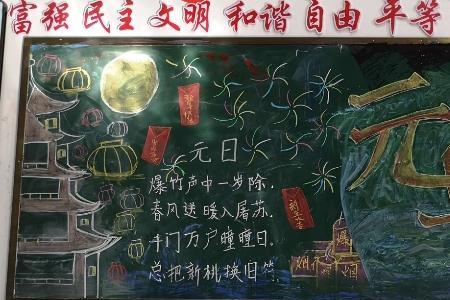 富强 民主 文明 和谐 自由 平等
元日
爆竹声中一岁除.
春风送暖入屠苏.
千门万户曈曈日.
总把新桃换旧符.
元
爆
烟